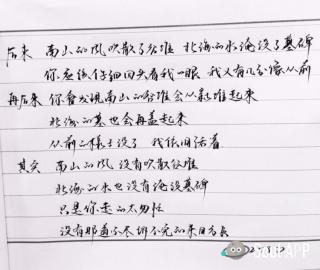 后来 南山的風吹散了谷堆 北海的水淹没了墓碑
你應該仔細回头看我一眼 我又有几分像从前
再后来 你會发現南山的谷堆会从新堆起来
北海的墓也会再盖起来
从前的様子没了 我依旧活着
其实 南山的風 没有吹散谷堆
北海的水也没有淹没墓碑
只是你走的太匆忙
没有那道不尽 的来日方长
APP